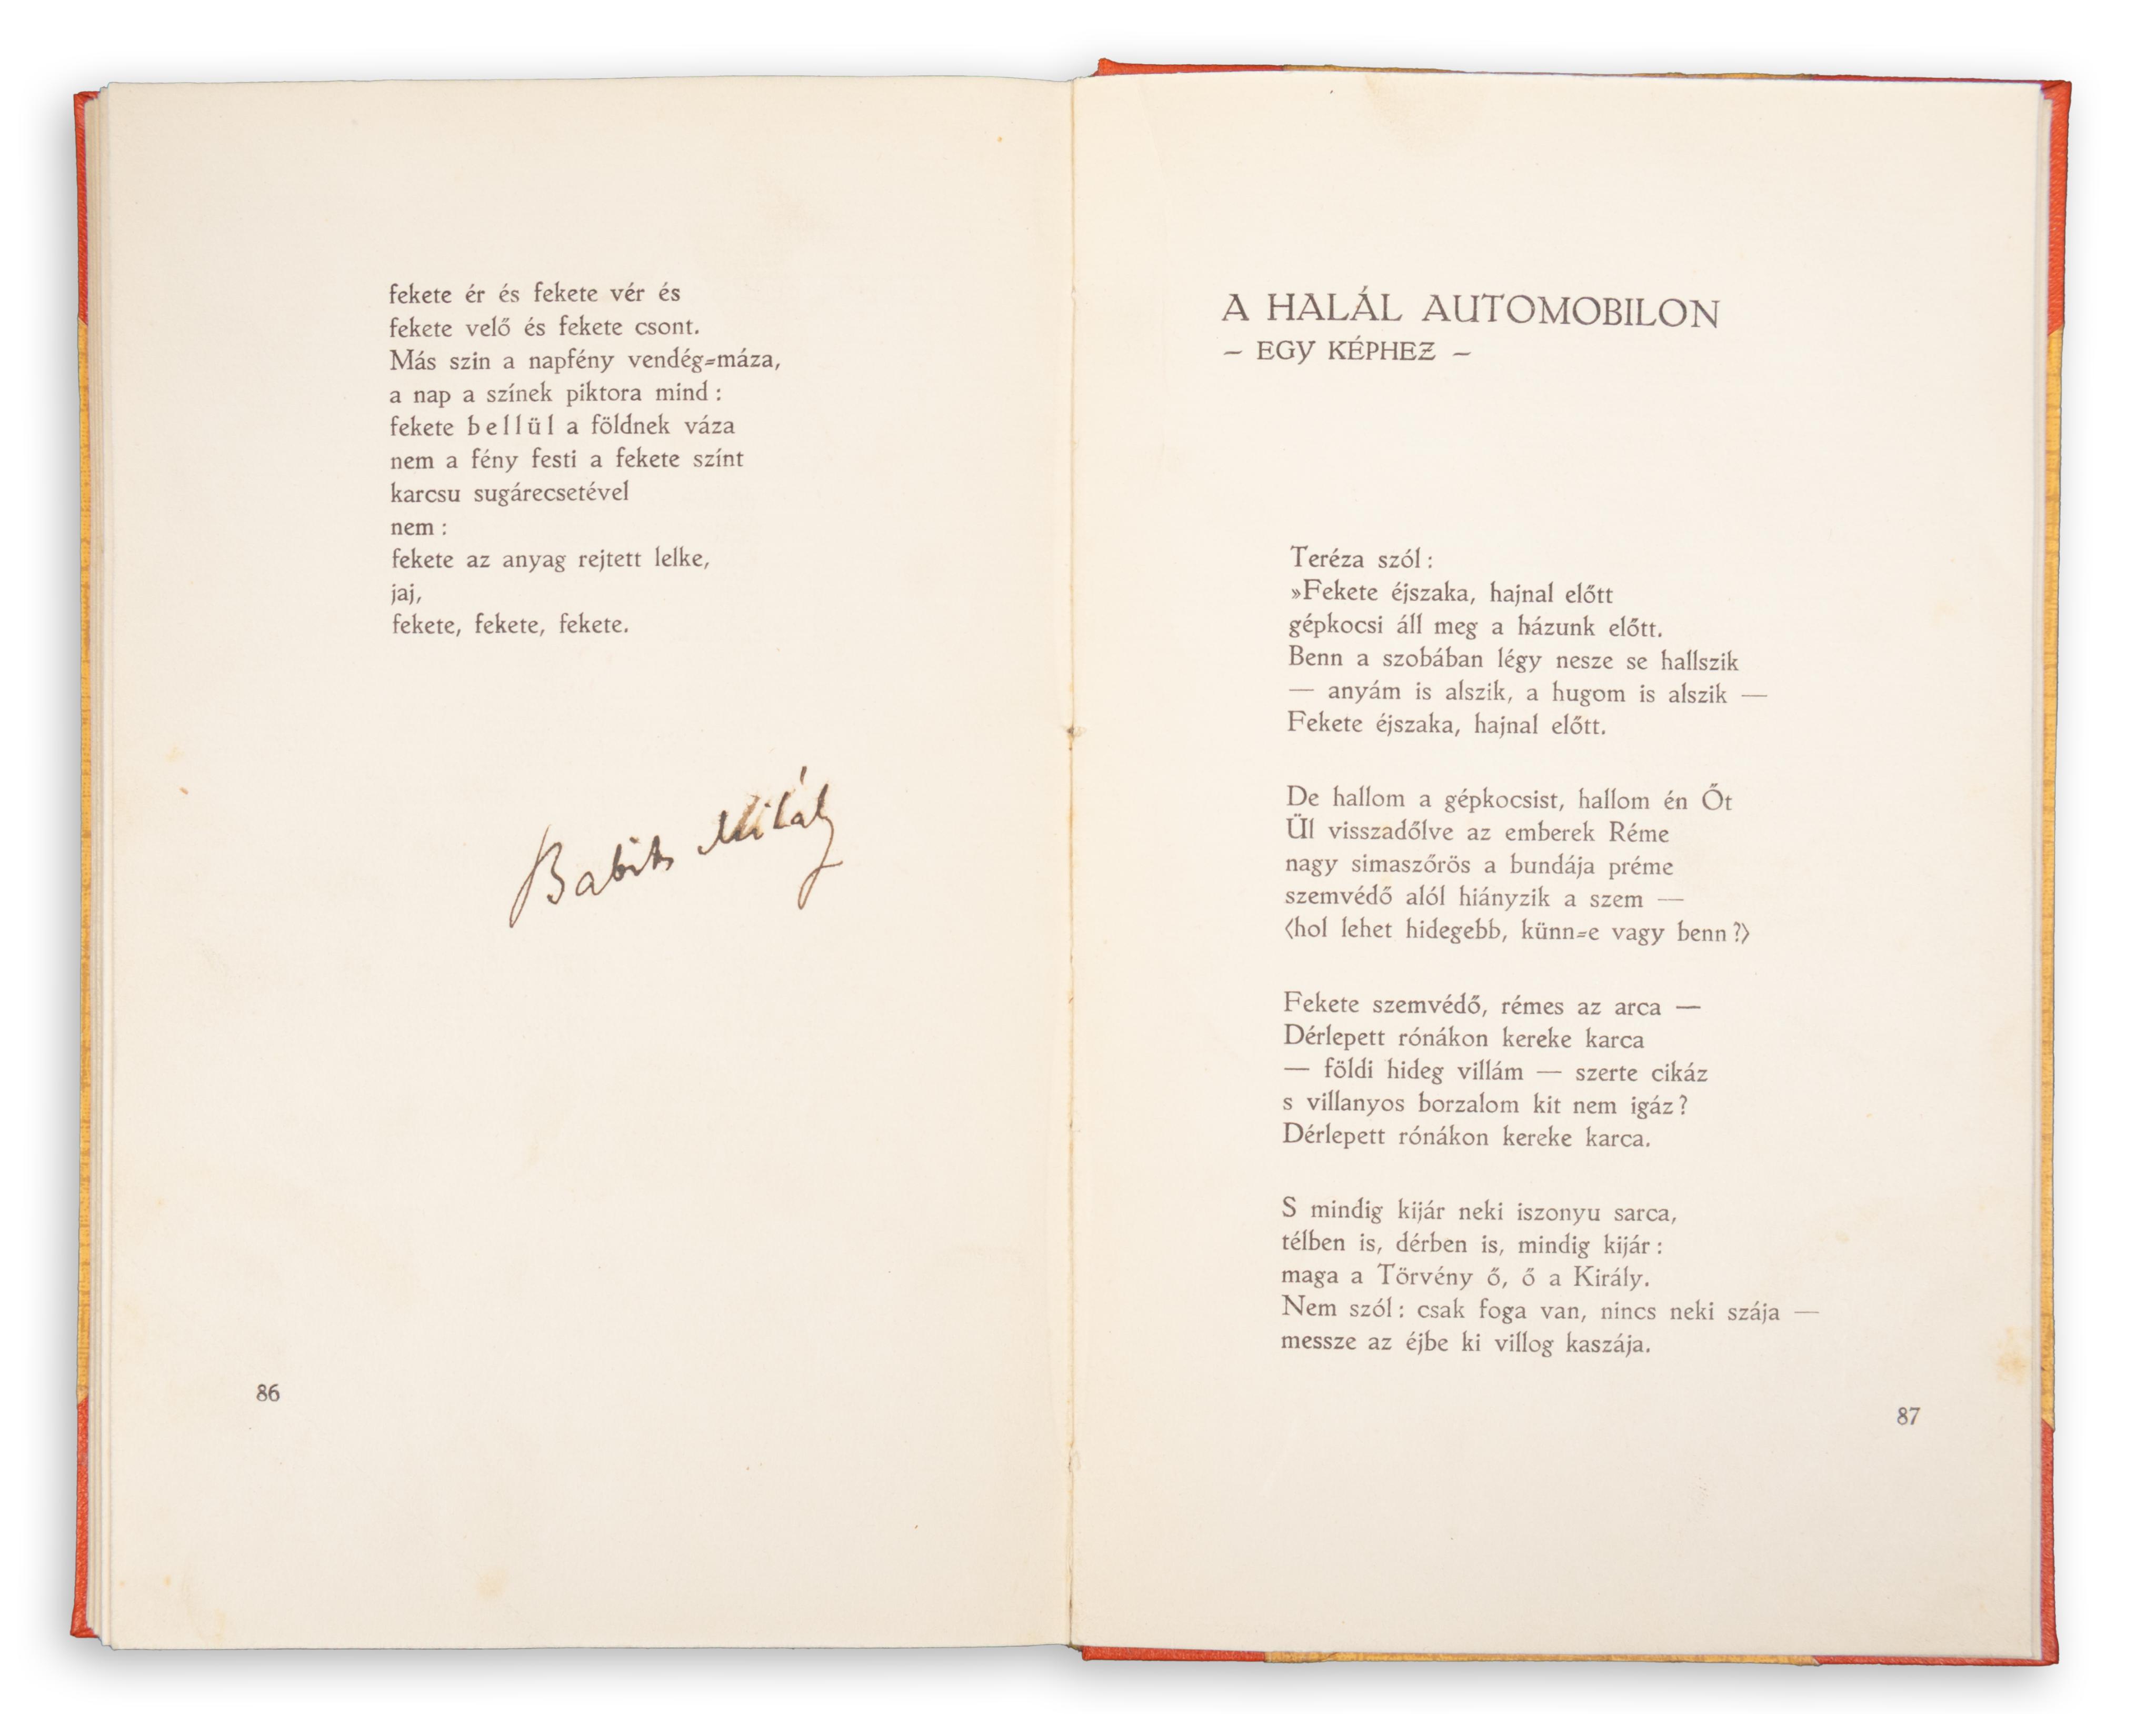 fekete ér és fekete vér és
fekete velő és fekete csont.
Más szin a napfény vendég-máza,
a nap a színek piktora mind :
fekete bellül a földnek váza
nem a fény festi a fekete színt
karcsu sugárecsetével
nem :
fekete az anyag rejtett lelke,
jaj,
fekete, fekete, fekete.
Babits Mihály
86
A HALÁL AUTOMOBILON
– EGY KÉPHEZ –
Teréza szól :
»Fekete éjszaka, hajnal előtt
gépkocsi áll meg a házunk előtt.
Benn a szobában légy nesze se hallszik
— anyám is alszik, a hugom is alszik —
Fekete éjszaka, hajnal előtt.
De hallom a gépkocsist, hallom én Őt
Ül visszadőlve az emberek Réme
nagy simaszőrös a bundája préme
szemvédő alól hiányzik a szem —
(hol lehet hidegebb, künn-e vagy benn ?)
Fekete szemvédő, rémes az arca —
Dérlepett rónákon kereke karca
— földi hideg villám — szerte cikáz
s villanyos borzalom kit nem igáz ?
Dérlepett rónákon kereke karca.
S mindig kijár neki iszonyu sarca,
télben is, dérben is, mindig kijár :
maga a Törvény ő, ő a Király.
Nem szól : csak foga van, nincs neki szája —
messze az éjbe ki villog kaszája.
87